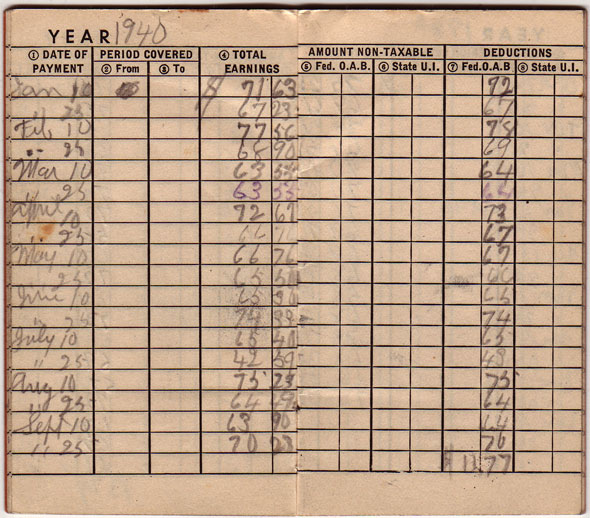 YEAR 1940
① DATE OF PAYMENT PERIOD COVERED ② From ③ To ④ TOTAL EARNINGS AMOUNT NON-TAXABLE ⑤ Fed. O.A.B. ⑥ State U.I. DEDUCTIONS ⑦ Fed.O.A.B ⑧ State U.I.
Jan 10 $ 71 63 72
" 25 67 23 67
Feb 10 77 56 78
" 25 68 90 69
Mar 10 63 64
" 25 63 55 64
April 10 72 67 73
" 25 67
May 10 66 76 67
" 25 65
June 10 65 65
" 25 74 74
July 10 65 65
" 25 42 59 43
Aug 10 75 23 75
" 25 64 49 64
Sept 10 63 90 64
" 25 70 23
$ 11.77